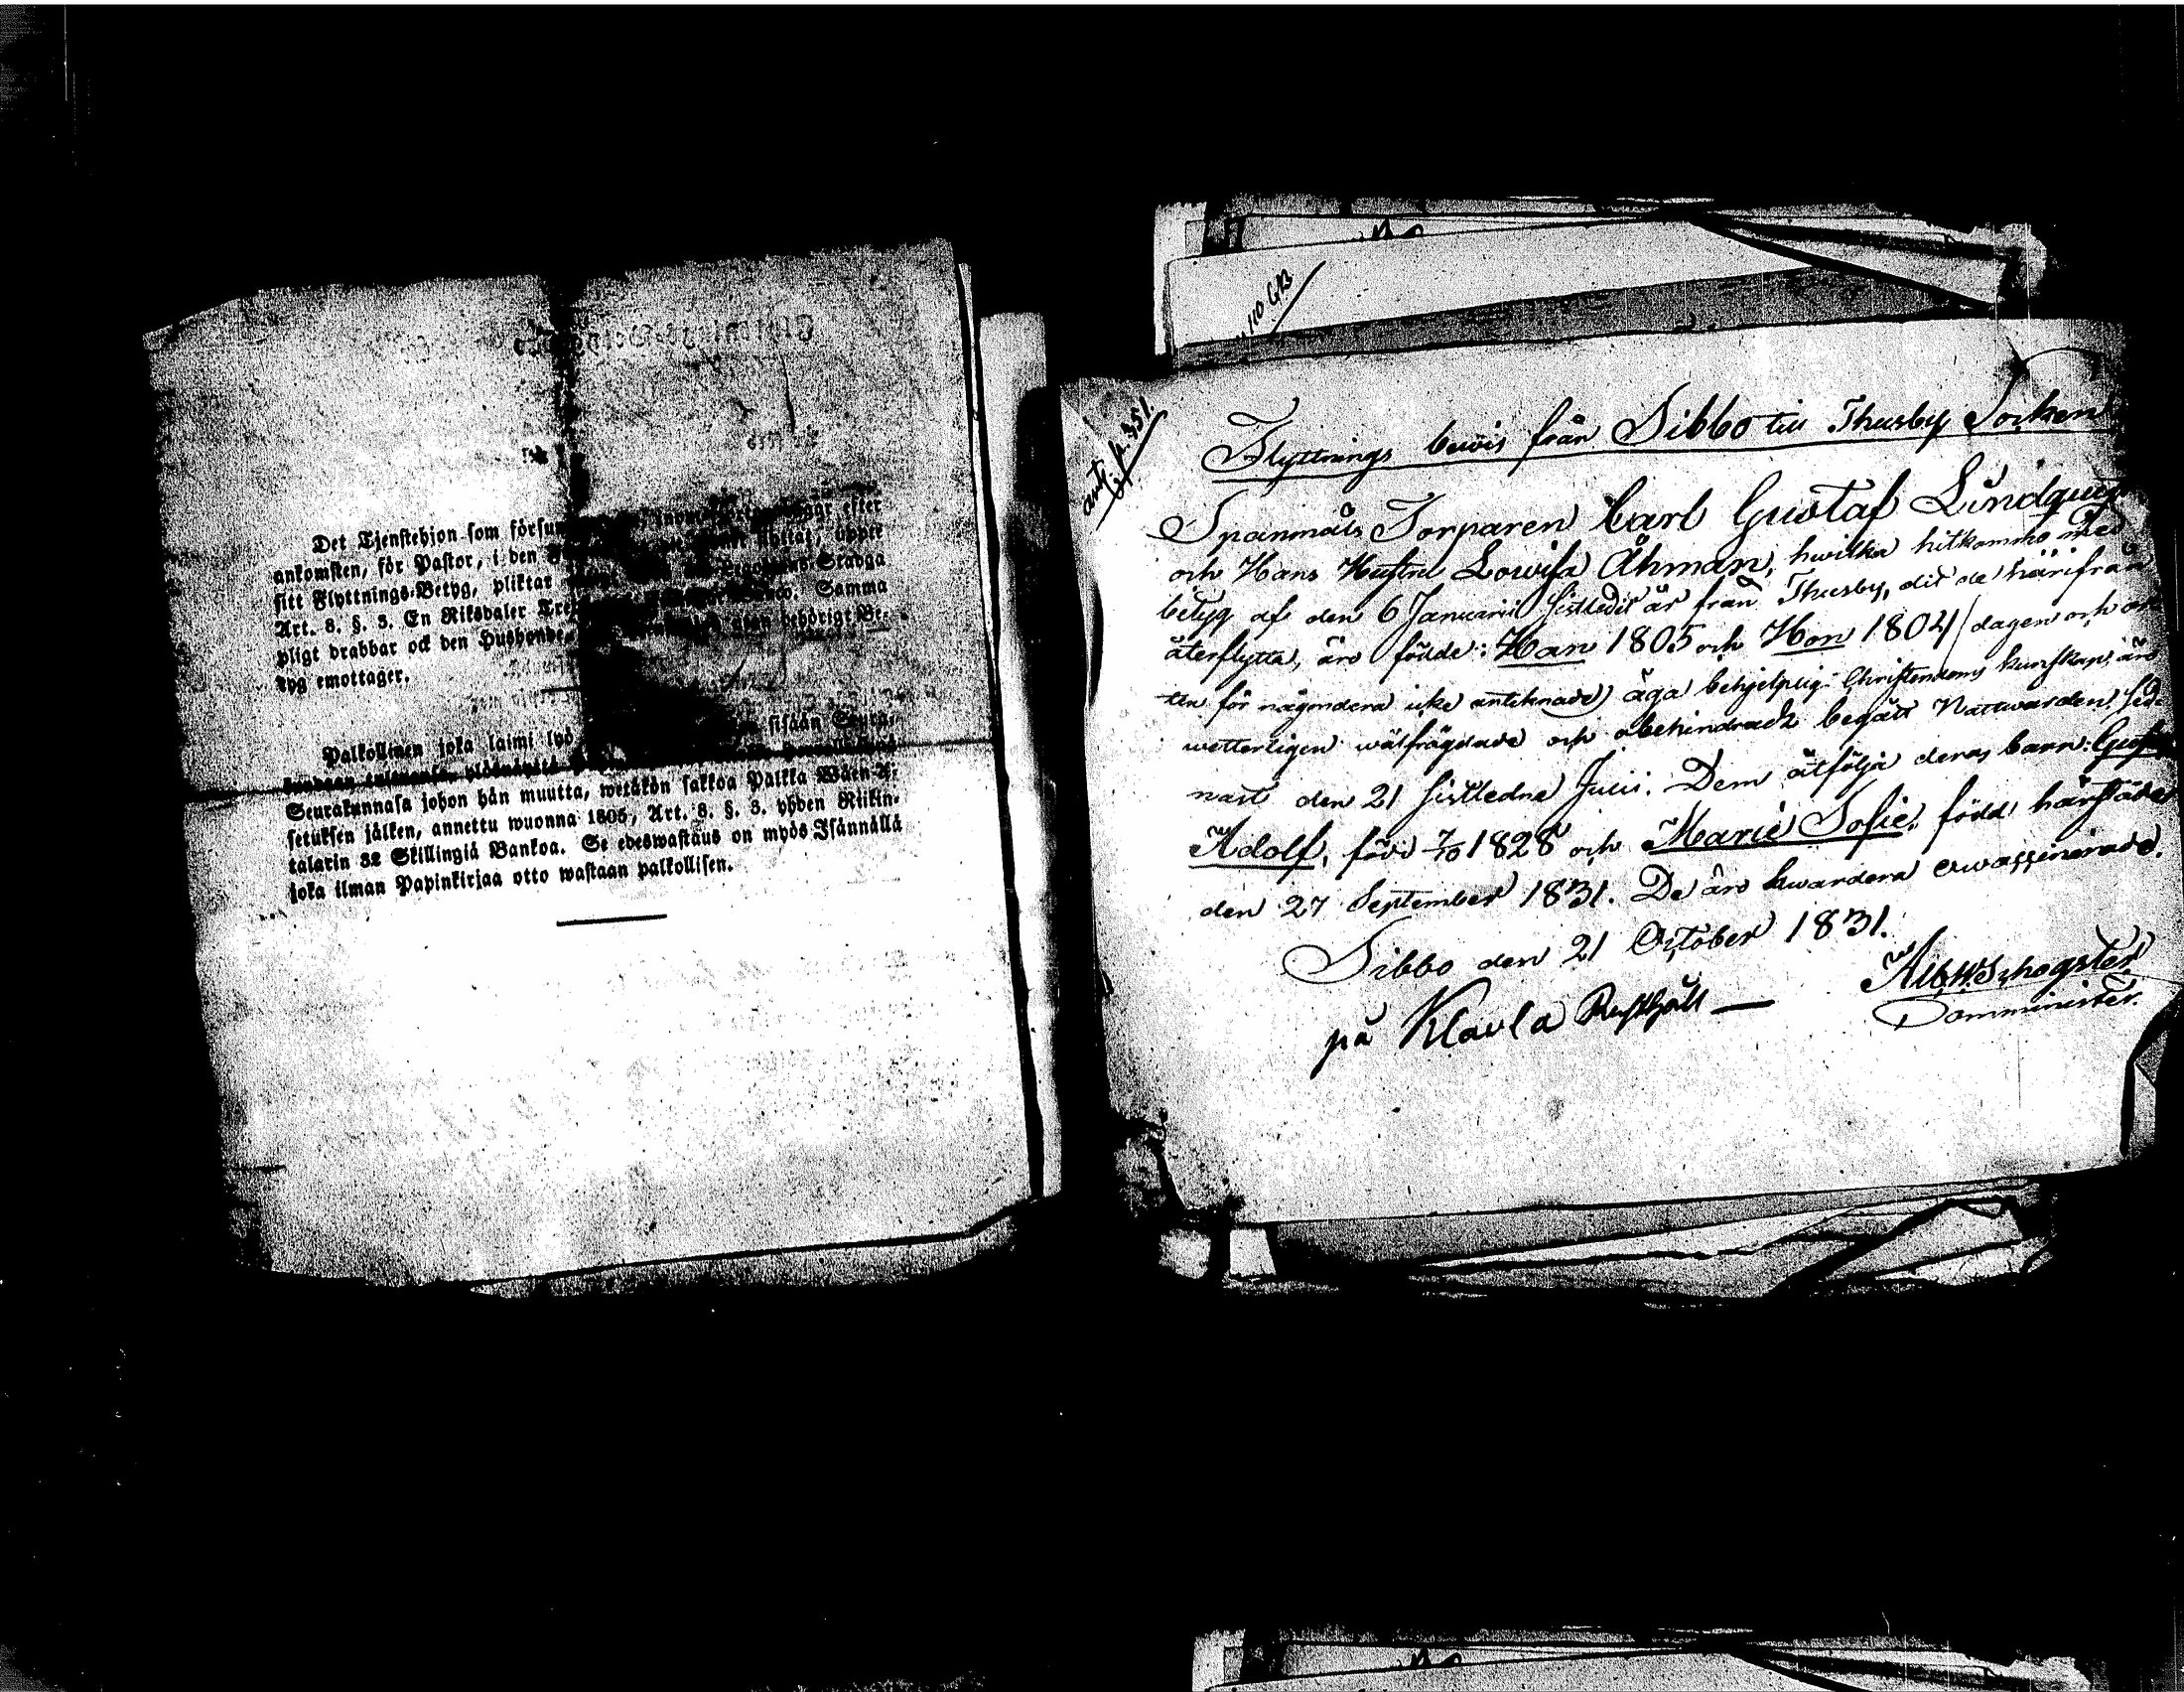 Det Tjenstehjon som försum efter
ankomsten, för Pastor, i den flyttat, uppte
sitt Flyttnings-Betyg, pliktar Stadga
Art. 8. §. 3. En Riksdaler Tre Banco. Samma
pligt drabbar ock den Husbonde, utan behörigt Be-
tyg emottager.
Palkollinen joka laimi lyö sisään Seura-
Seurakunnasa johon hän muutta, wetäkön sakkoa Palkka Wäen A-
setuksen jälken, annettu wuonna 1805, Art. 8. §. 3. yhden Riikin-
talarin 32 Skillingiä Bankoa. Se edeswastaus on myös Isännällä
joka ilman Papinkirjaa otto wastaan palkollisen.
110 GB
ant. p. 351.
Flyttnings bewis från Sibbo till Thusby Socken
Spanmåls Torparen Carl Gustaf Lindqvist
och Hans Hustru Lowisa Åhman, hwilka hitkommo med
betyg af den 6 Januarii sistledit år från Thusby, dit de härifrån
återflytta, äro födde: Han 1805 och Hon 1804 /dagen och or-
ten för någondera icke anteknade) äga behjelplig Christendoms kunskap, äro
wetterligen wälfrägdade och obehindrade begått Nattwarden, sed-
nast den 21 sistledne Julii. Dem åtfölja deras barn: Gustaf
Adolf, född 7/10 1828 och Marie Sofie, född härstädes
den 27 September 1831. De äro hwardera owaccinerade.
Sibbo den 21 October 1831.
Comminister.
på Klavla Rusthåll —